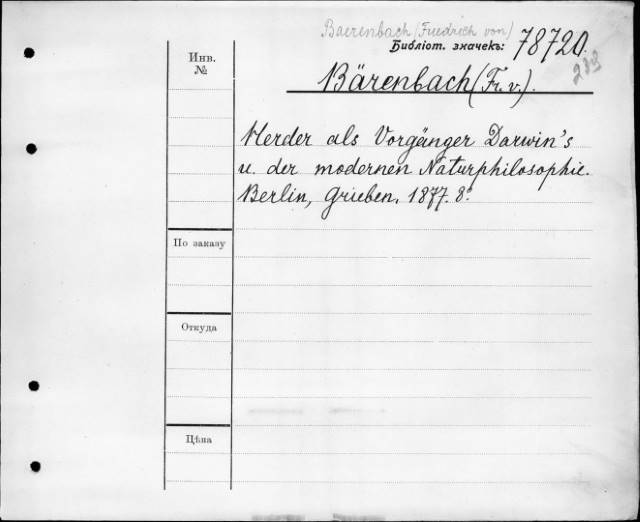 Baerenbach (Friedrich von)
Библіот. значекъ: 78720.
Инв. №
Bärenbach (Fr. v.).
Herder als Vorgänger Darwin's
u. der modernen Naturphilosophie.
Berlin, Grieben, 1877. 8°.
По заказу
Откуда
Цѣна